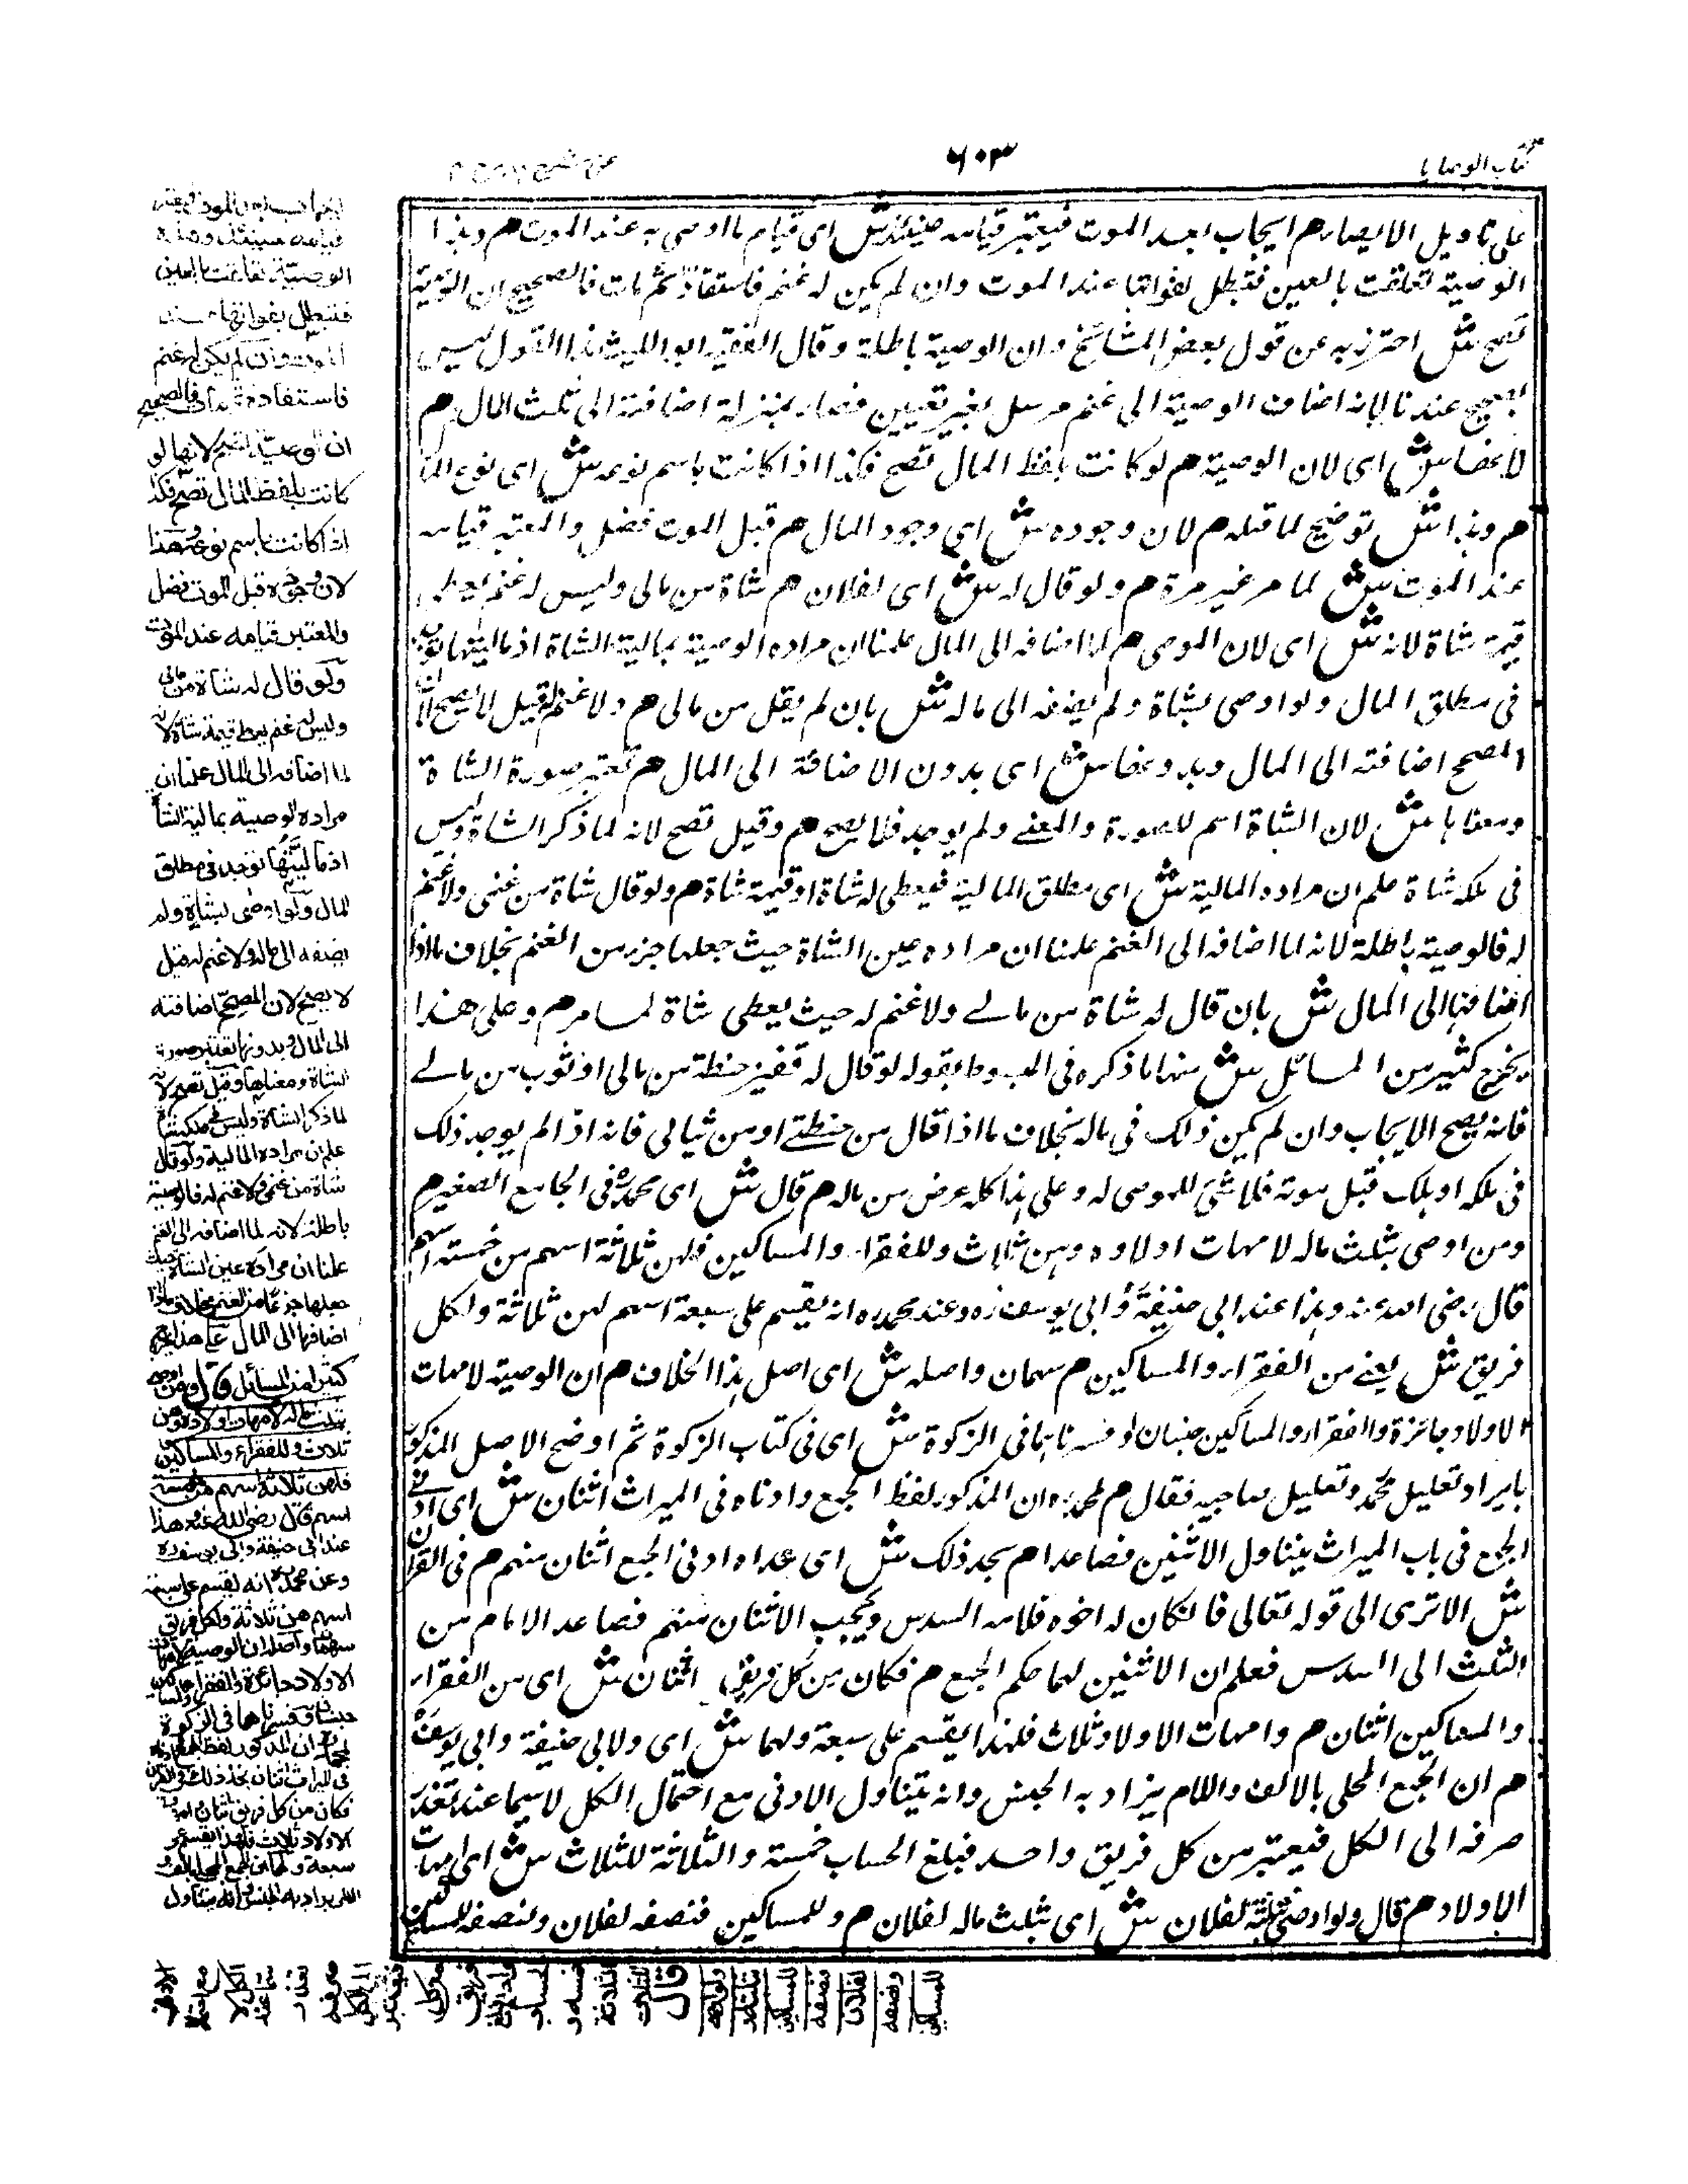 كتاب الوصايا
٦٠٣
على تاويل الايصاء هم ايجاب بعد الموت فيعتبر قيامه حينئذ ش اى قيام ما اوصى به عند الموت هم وهذا
الوصية تعلقت بالعين فتبطل بفواتها عند الموت وان لم يكن له غنم فاستفاد ثم مات فالصحيح ان الوصية
تصح ش احترز به عن قول بعض المشائخ وان الوصية باطلة وقال الفقيه ابو الليث هذا القول ليس
بصحيح عندنا لانه اضاف الوصية الى غنم مرسل بغير تعيين فصار بمنزلة اضافته الى ثلث المال هم
لانها ش اى لان الوصية هم لو كانت بلفظ المال تصح فكذا اذا كانت باسم نوعه ش اى نوع المال
هم وهذا ش توضيح لما قبله هم لان وجوده ش اى وجود المال هم قبل الموت فضل والمعتبر قيامه
عند الموت ش لما مر غير مرة هم ولو قال له ش اى لفلان هم شاة من مالى وليس له غنم يعطى
قيمة شاة لانه ش اى لان الموصى هم لما اضافه الى المال علمنا ان مراده الوصية بمالية الشاة اذ ماليتها توجد
فى مطلق المال ولو اوصى بشاة ولم يضفه الى ماله ش بان لم يقل من مالى هم ولا غنم له قيل لا يصح لان
المصحح اضافته الى المال وبدونها ش اى بدون الاضافة الى المال هم تعتبر صورة الشاة
ومعناها ش لان الشاة اسم للصورة والمعنے ولم يوجد فلا يصح هم وقيل تصح لانه لما ذكر الشاة وليس
فى ملكه شاة علم ان مراده المالية ش اى مطلق المالية فيعطى له شاة او قيمة شاة هم ولو قال شاة من غنمى ولا غنم
له فالوصية باطلة لانه لما اضافه الى الغنم علمنا ان مراده عين الشاة حيث جعلها جزء من الغنم بخلاف ما اذا
اضافها الى المال ش بان قال له شاة من مالے ولا غنم له حيث يعطى شاة لما مر هم وعلى هذا
يخرج كثير من المسائل ش منها ما ذكره فى المبسوط بقوله لو قال له قفيز حنطة من مالى او ثوب من مالے
فانه يصح الايجاب وان لم يكن ذلك فى ماله بخلاف ما اذا قال من حنطتے او من ثيابى فانه اذا لم يوجد ذلك
فى ملكه او هلك قبل موته فلا شئ للموصى له وعلى هذا كله عرض من ماله هم قال ش اى محمد ره فى الجامع الصغير هم
ومن اوصى بثلث ماله لامهات اولاده وهن ثلاث وللفقراء والمساكين فلهن ثلاثة اسهم من خمسة اسهم
قال رضى الله عنه وهذا عند ابى حنيفة وابى يوسف ره وعند محمد ره انه يقسم على سبعة اسهم لهن ثلاثة ولكل
فريق ش يعنے من الفقراء والمساكين هم سهمان واصله ش اى اصل هذا الخلاف هم ان الوصية لامهات
الاولاد جائزة والفقراء والمساكين جنسان وفسرناهما فى الزكوة ش اى فى كتاب الزكوة ثم اوضح الاصل المذكور
بايراد تعليل محمد وتعليل صاحبيه فقال هم لمحمد ره ان المذكور لفظ الجمع وادناه فى الميراث اثنان ش اى ادنى
الجمع فى باب الميراث يتناول الاثنين فصاعدا هم نجد ذلك ش اى عدا ه ادنى الجمع اثنان منهم هم فى القران
ش الا ترى الى قوله تعالى فان كان له اخوة فلامه السدس ويحجب الاثنان منهم فصاعدا الام من
الثلث الى السدس فعلم ان الاثنين لهما حكم الجمع هم فكان من كل فريق اثنان ش اى من الفقراء
والمساكين اثنان هم وامهات الاولاد ثلاث فلهذا يقسم على سبعة ولهما ش اى ولابى حنيفة وابى يوسف
هم ان الجمع المحلى بالالف واللام يراد به الجنس وانه يتناول الادنى مع احتمال الكل لا سيما عند تعذر
صرفه الى الكل فيعتبر من كل فريق واحد فبلغ الحساب خمسة والثلاثة للثلاث ش اى امهات
الاولاد هم قال ولو اوصى بثلثه لفلان ش اى بثلث ماله لفلان هم وللمساكين فنصفه لفلان ونصفه للمساكين
ايجاب بعد الموت فيعتبر
قيامه حينئذ وهذه
الوصية تعلقت بالعين
فتبطل بفواتها عند
الموت وان لم يكن له غنم
فاستفاده ثم مات فالصحيح
ان الوصية تصح لانها لو
كانت بلفظ المال تصح فكذا
اذا كانت باسم نوعه وهذا
لان وجوده قبل الموت فضل
والمعتبر قيامه عند الموت
ولو قال له شاة من مالى
وليس له غنم يعطى قيمة شاة لانه
لما اضافه الى المال علمنا ان
مراده الوصية بمالية الشاة
اذ ماليتها توجد فى مطلق
المال ولو اوصى بشاة ولم
يضفه الى ماله ولا غنم له قيل
لا يصح لان المصحح اضافته
الى المال وبدونها تعتبر صورة
الشاة ومعناها وقيل تصح لانه
لما ذكر الشاة وليس فى ملكه شاة
علم ان مراده المالية ولو قال
شاة من غنمى ولا غنم له فالوصية
باطلة لانه لما اضافه الى الغنم
علمنا ان مراده عين الشاة حيث
جعلها جزءا من الغنم بخلاف ما اذا
اضافها الى المال وعلى هذا يخرج
كثير من المسائل قال ومن اوصى
بثلث ماله لامهات اولاده وهن
ثلاث وللفقراء والمساكين
فلهن ثلاثة اسهم من خمسة
اسهم قال رضى الله عنه وهذا
عند ابى حنيفة وابى يوسف ره
وعن محمد ره انه يقسم على سبعة
اسهم لهن ثلاثة ولكل فريق
سهمان واصله ان الوصية لامهات
الاولاد جائزة والفقراء والمساكين
جنسان وفسرناهما فى الزكوة
لمحمد ان المذكور لفظ الجمع وادناه
فى الميراث اثنان نجد ذلك فى القران
فكان من كل فريق اثنان وامهات
الاولاد ثلاث فلهذا يقسم على
سبعة ولهما ان الجمع المحلى بالالف و
اللام يراد به الجنس وانه يتناول
الادنى
مع احتمال
الكل لا
سيما عند
تعذر
صرفه
الى الكل
فيعتبر
من كل
فريق
واحد فبلغ
الحساب
خمسة و
الثلاثة
للثلاث
قال
ولو اوصى
بثلثه
لفلان
وللمساكين
فنصفه
لفلان
ونصفه
للمساكين